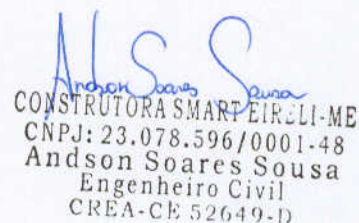 Andson Soares Sousa
CONSTRUTORA SMART EIRELI-ME
CNPJ: 23.078.596/0001-48
Andson Soares Sousa
Engenheiro Civil
CREA-CE 52649-D